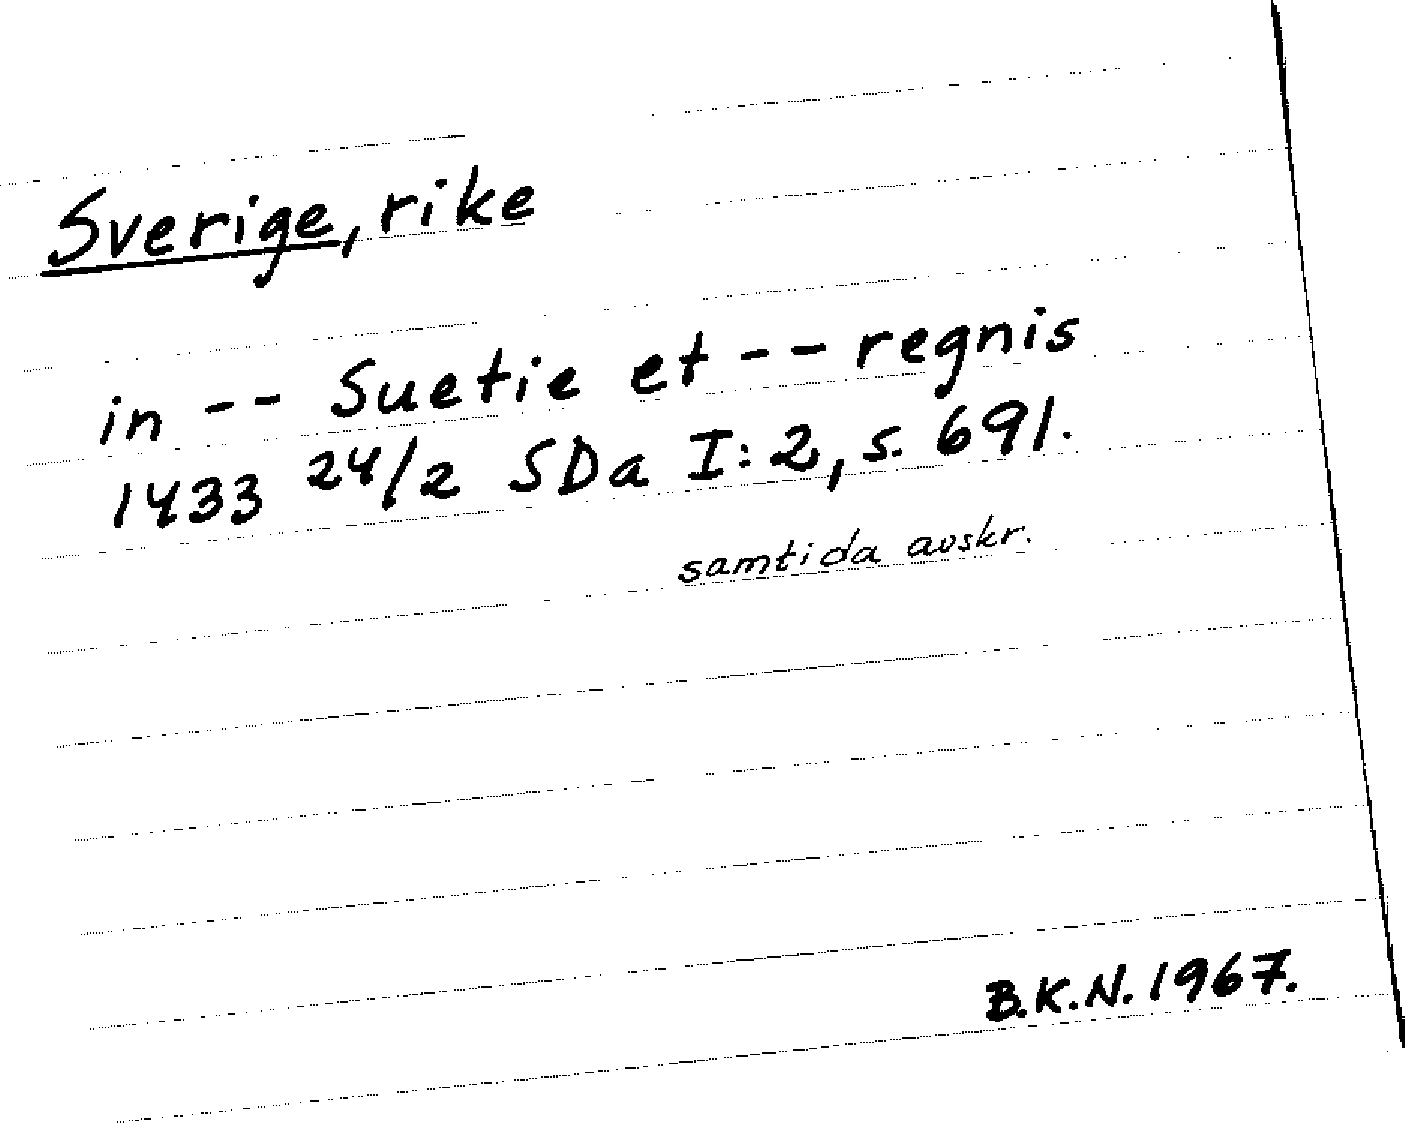 Sverige, rike
in -- Suetie et -- regnis
1433 24/2 SDa I:2, s. 691.
samtida avskr.
B.K.N. 1967.